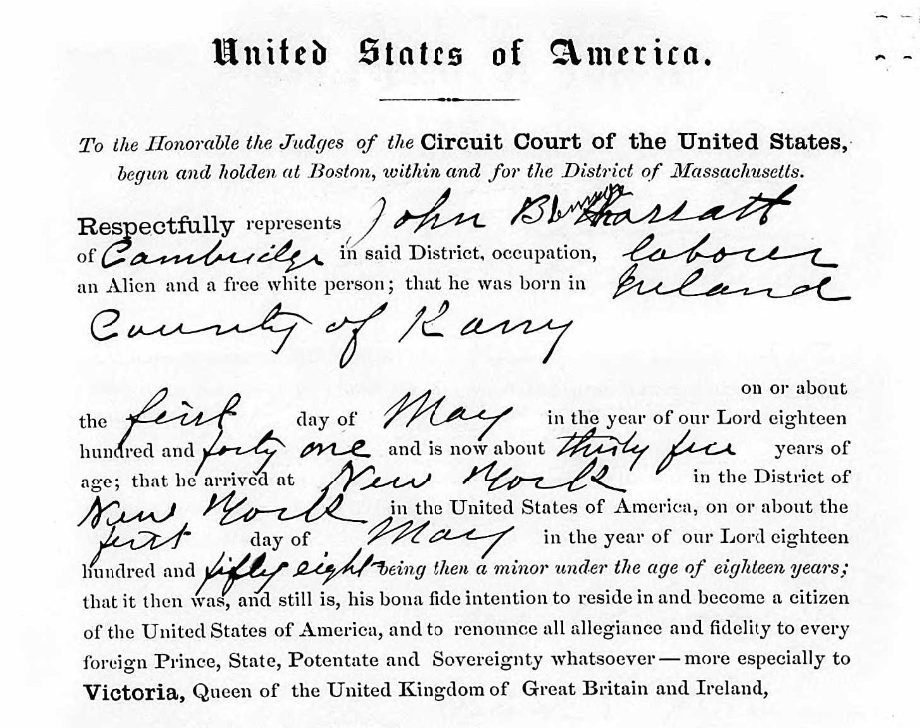 United States of America.
To the Honorable the Judges of the Circuit Court of the United States,
begun and holden at Boston, within and for the District of Massachusetts.
Respectfully represents John B
of Cambridge in said District, occupation, laborer
an Alien and a free white person; that he was born in Ireland
County of Karry
on or about
the first day of May in the year of our Lord eighteen
hundred and forty one and is now about thirty five years of
age; that he arrived at New York in the District of
New York in the United States of America, on or about the
first day of May in the year of our Lord eighteen
hundred and fifty eight being then a minor under the age of eighteen years;
that it then was, and still is, his bona fide intention to reside in and become a citizen
of the United States of America, and to renounce all allegiance and fidelity to every
foreign Prince, State, Potentate and Sovereignty whatsoever — more especially to
Victoria, Queen of the United Kingdom of Great Britain and Ireland,